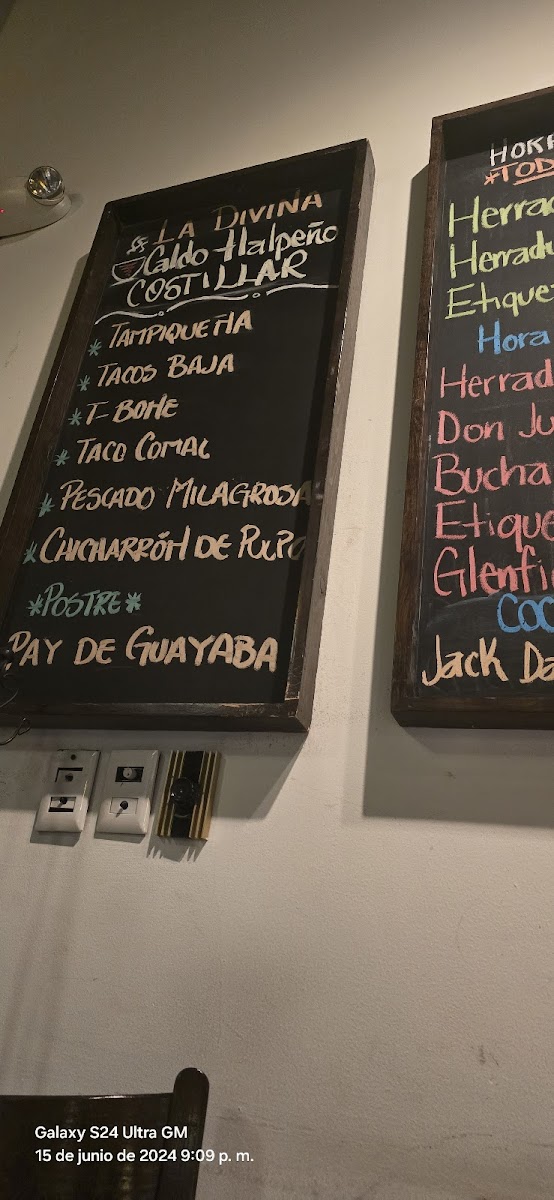 LA DIVINA
Caldo tlalpeño
COSTILLAR
* TAMPIQUEÑA
* TACOS BAJA
* T-BONE
* TACO COMAL
* PESCADO MILAGROSA
* CHICHARRÓN DE PULPO
*POSTRE*
PAY DE GUAYABA
HORA
*TOD
Herrad
Herradu
Etique
Hora
Herrad
Don Ju
Bucha
Etique
Glenfi
COC
Jack Da
Galaxy S24 Ultra GM
15 de junio de 2024 9:09 p. m.